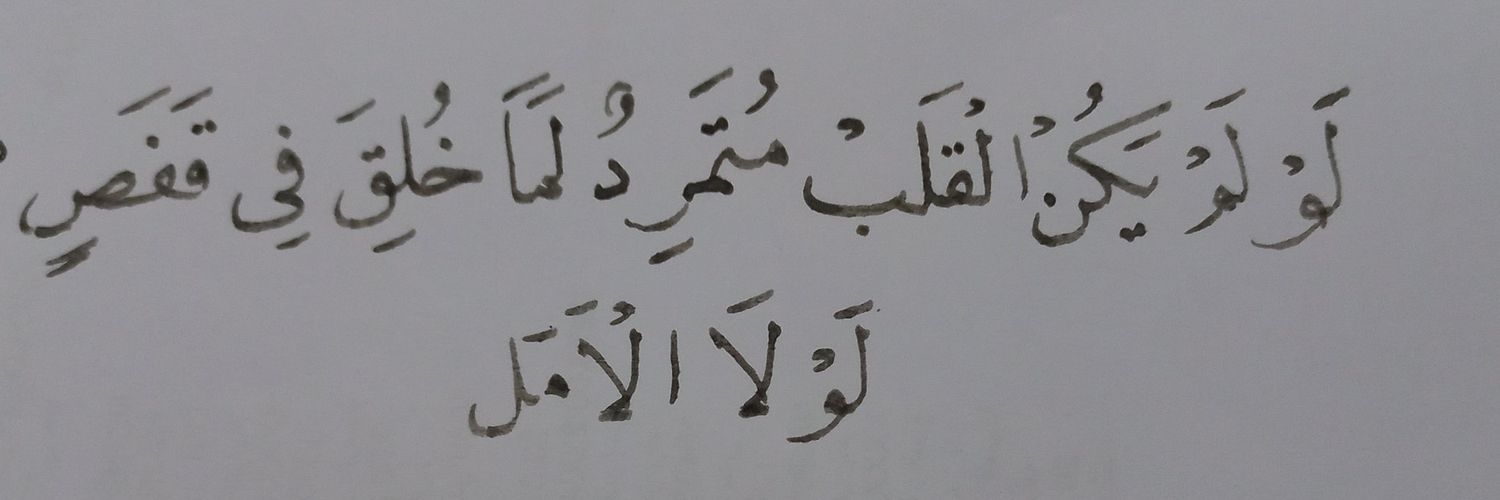 لَوْ لَوْ يَكُنْ الْقَلَبْ مُتَمَرِدُ لَمَاَ خُلِقَ فِى قَفَصٍ
لَوْ لَا الْاَمَل